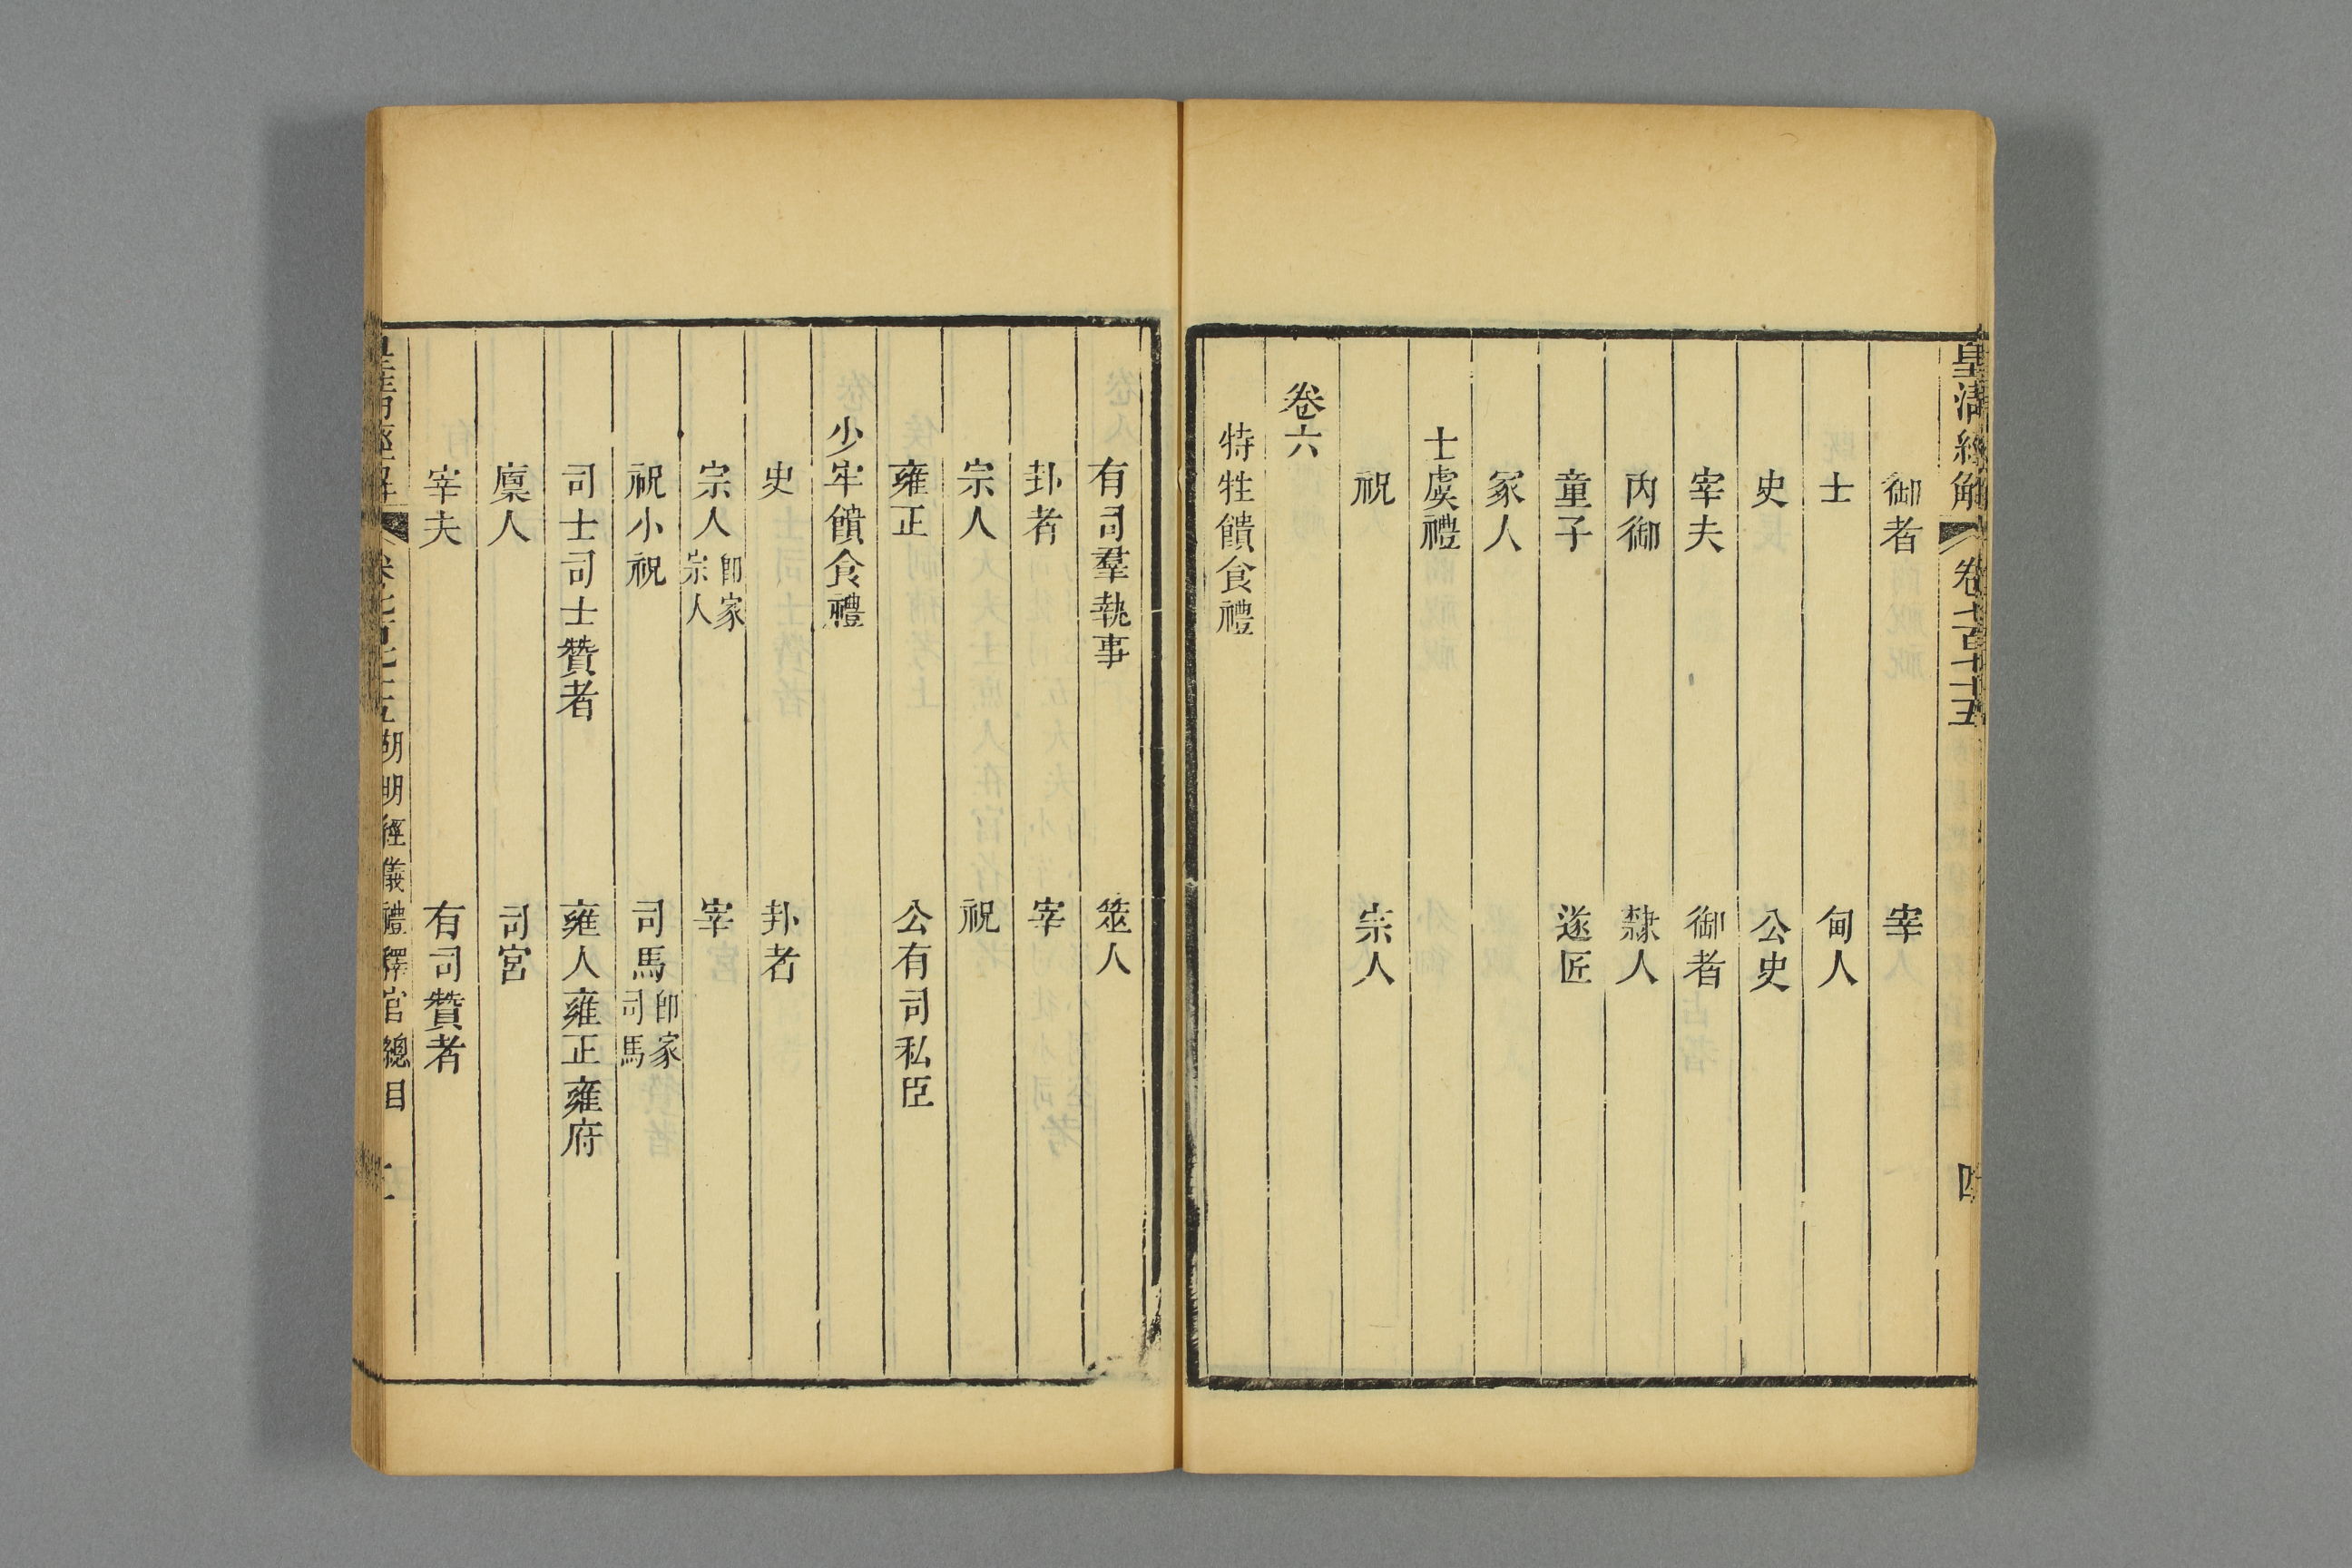 皇清經解 卷七百七十五 四
御者 宰
士 甸人
史 公史
宰夫 御者
內御 隸人
童子 遂匠
冢人
士虞禮
祝 宗人
卷六
特牲饋食禮
有司羣執事 筮人
卦者 宰
宗人 祝
雍正 公有司私臣
少牢饋食禮
史 卦者
宗人 卽家宗人 宰
祝小祝 司馬 卽家司馬
司士司士贊者 雍人雍正雍府
廩人 司宮
宰夫 有司贊者
皇清經解 卷七百七十五 胡明經儀禮釋官總目